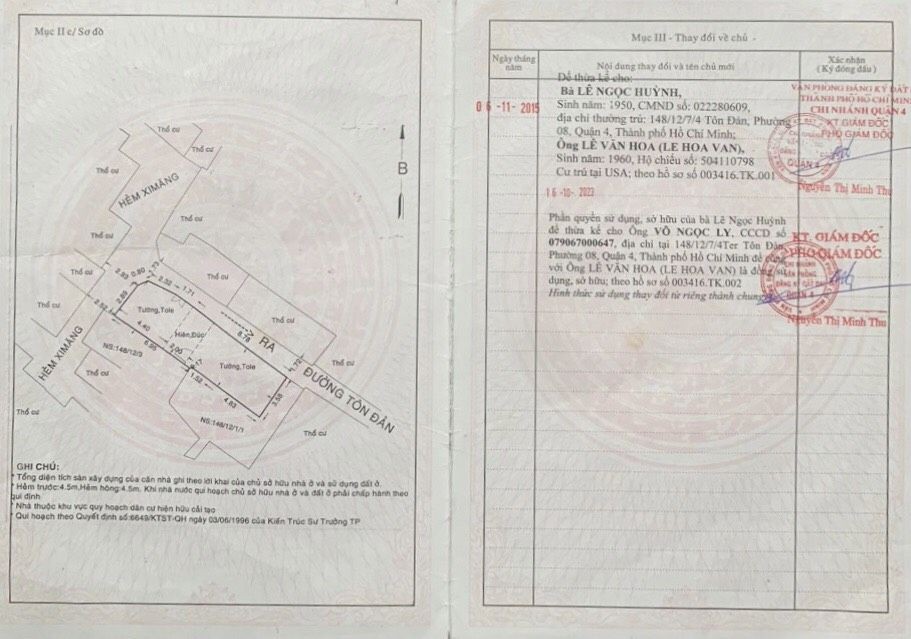 Mục II c/ Sơ đồ
Thổ cư
Thổ cư
Thổ cư
HẺM XIMĂNG
B
Thổ cư
Thổ cư
Thổ cư
2.93
0.80
1.73
2.32
1.71
2.92
2.85
Tường,Tole
8.78
RA
Thổ cư
Hiên,Đúc
4.40
6.95
2.00
NS:148/12/9
Tường,Tole
Thổ cư
HẺM XIMĂNG
Thổ cư
1.52
4.83
3.58
ĐƯỜNG TÔN ĐẢN
Thổ cư
NS:148/12/1/1
Thổ cư
GHI CHÚ:
* Tổng diện tích sàn xây dựng của căn nhà ghi theo lời khai của chủ sở hữu nhà ở và sử dụng đất ở.
* Hẻm trước:4.5m,Hẻm hông:4.5m. Khi nhà nước qui hoạch chủ sở hữu nhà ở và đất ở phải chấp hành theo
qui định
* Nhà thuộc khu vực quy hoạch dân cư hiện hữu cải tạo
* Qui hoạch theo Quyết định số:6649/KTST-QH ngày 03/06/1996 của Kiến Trúc Sư Trưởng TP
Mục III - Thay đổi về chủ -
Ngày tháng
năm
Nội dung thay đổi và tên chủ mới
Xác nhận
( Ký đóng dấu )
06-11-2015
Để thừa kế cho:
Bà LÊ NGỌC HUỲNH,
Sinh năm: 1950, CMND số: 022280609,
địa chỉ thường trú: 148/12/7/4 Tôn Đản, Phường
08, Quận 4, Thành phố Hồ Chí Minh;
Ông LÊ VĂN HOA (LE HOA VAN),
Sinh năm: 1960, Hộ chiếu số: 504110798
Cư trú tại USA; theo hồ sơ số 003416.TK.001
VĂN PHÒNG ĐĂNG KÝ ĐẤT
THÀNH PHỐ HỒ CHÍ MINH
CHI NHÁNH QUẬN 4
KT.GIÁM ĐỐC
PHÓ GIÁM ĐỐC
QUẬN 4
Nguyễn Thị Minh Thu
16-10-2023
Phần quyền sử dụng, sở hữu của bà Lê Ngọc Huỳnh
để thừa kế cho Ông VÕ NGỌC LY, CCCD số
079067000647, địa chỉ tại 148/12/7/4Ter Tôn Đản,
Phường 08, Quận 4, Thành phố Hồ Chí Minh để cùng
với Ông LÊ VĂN HOA (LE HOA VAN) là đồng sử
dụng, sở hữu; theo hồ sơ số 003416.TK.002
Hình thức sử dụng thay đổi từ riêng thành chung
KT. GIÁM ĐỐC
PHÓ GIÁM ĐỐC
QUẬN 4
Nguyễn Thị Minh Thu